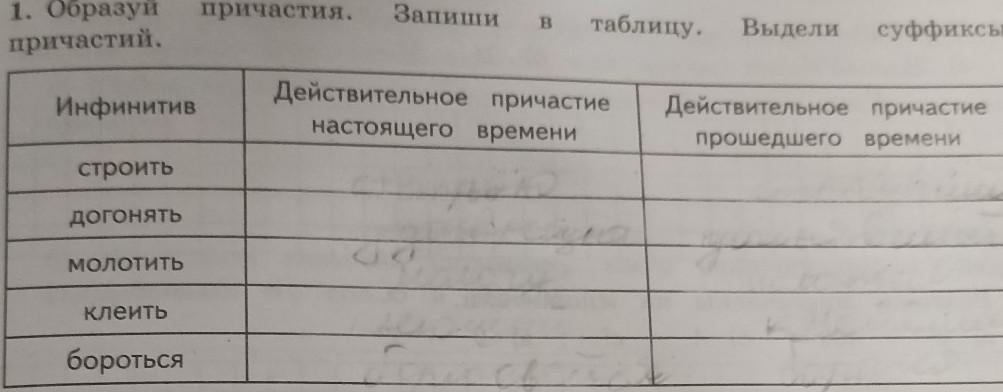 1. Образуй причастия. Запиши в таблицу. Выдели суффиксы
причастий.
Инфинитив
Действительное причастие
настоящего времени
Действительное причастие
прошедшего времени
строить
догонять
молотить
клеить
бороться